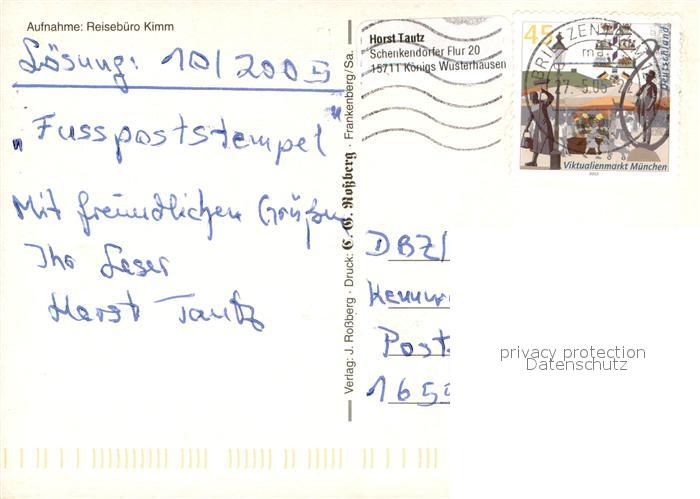 Aufnahme: Reisebüro Kimm
Lösung: 10/2005
"Fusspoststempel"
Mit freundlichen Grüßen
Ihr Leser
Horst Tautz
Verlag: J. Roßberg · Druck: C. G. Roßberg · Frankenberg/Sa.
Horst Tautz
Schenkendorfer Flur 20
15711 Königs Wusterhausen
45
Deutschland
Viktualienmarkt München
2003
BRIEFZENTRUM
DBZ/
Post
165
privacy protection
Datenschutz